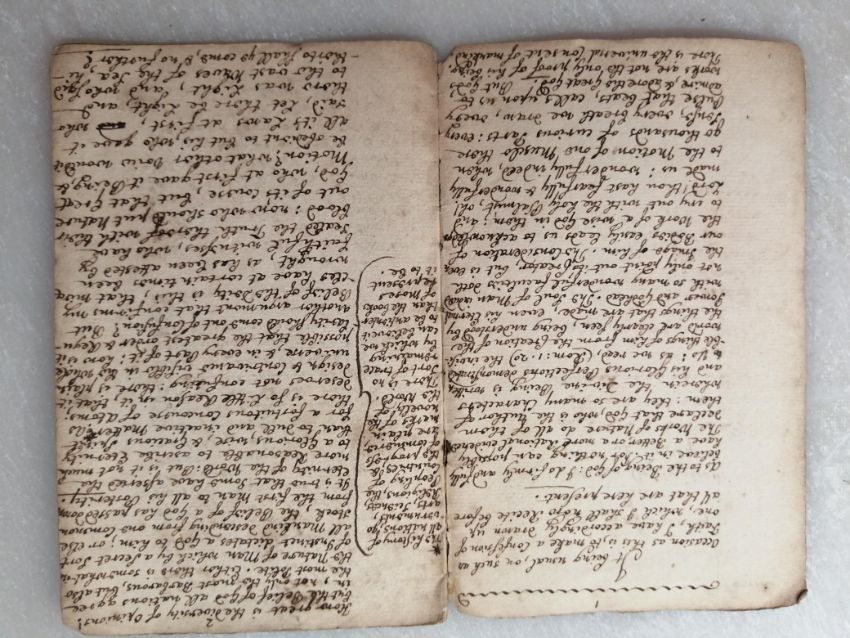 1
It being usual, on such an
Occasion as this is, to make a Confession of
Faith, I have accordingly drawn up
one, which I shall now recite before
all that are here present.
As to the Being of God: I do firmly and fully
believe it, nor can any thing
have a Better or a more rational evidence
The Works of Nature do all of them
declare that God who is the Author of
them: they are so many Characters
wherein the Divine Being is
and his Glorious Perfections demonstrated
to us: As we read, Rom: 1.20. The invisi-
ble things of him from the Creation of the
world are clearly seen, being understood by
the things that are made, even his Eternal
Power and Godhead. The Soul of Man indeed
with so many wonderful faculties doth
not only point out its Creator, but is even
the Image of him. The Consideration of
our Bodies early leads us to acknowledge
the Work of a wise God in them; and
to cry out with the holy Psalmist, oh,
Lord thou hast fearfully & wonderfully
made us: wonderfully indeed, when
to the Motion of one Muscle there
go thousands of curious Parts: every
every breath we draw, every
Pulse that beats, calls upon us to
admire & adore the Great God. But God's
works are not the only proof of his being.
There is the universal Consent of mankind.
How great is the Diversity of Opinions!
but this Belief of God all nations agree
in, not only the most Barbarous, but also
the most Polite. Either there is somewhat in
the Nature of Man which by a secret sort
of Instinct dictates to him a God; or else
all Mankind descending from one common
Stock, the Belief of a God has passed down
from the first Man to all his Posterity.
It is true that some have asserted the
eternity of the World: But is it not much
more Reasonable to ascribe Eternity
to a Glorious, wise, & Gracious Spirit
than to dull and inactive Matter? As
for a fortuitous Concourse of Atoms;
there is so little Reason in it, that it
deserves not confuting: there is plain
design & Contrivance visible in the whole
universe & in every Part of it: how is it
possible that the greatest order & Regu
larity should come out of Confusion? But
another argument that confirms my
Belief of the Deity is this, that mira
cles have at certain times been
wrought, as has been attested by
faithful witnesses, who have
sealed the Truth thereof with their
blood: now who should put Nature
out of its course, but that Great
God, who at first gave it Being &
Motion? what other Power would it
be obedient to but his, who gave it
all its Laws at first, who
said Let there be Light, and
there was Light, and who said
to the vast Waves of the Sea, hi-
therto shall ye come, & no further?
The History of
all nations, go
vernments,
arts, sciences,
Religions, the
Peopling of
countries &
the progress of
Commerce,
are plain
marks of the
novelty of
the World
There is no
sort of trace
remaining
by which we
can believe it
to be ancienter
than the books
of Moses
represent
it to be.